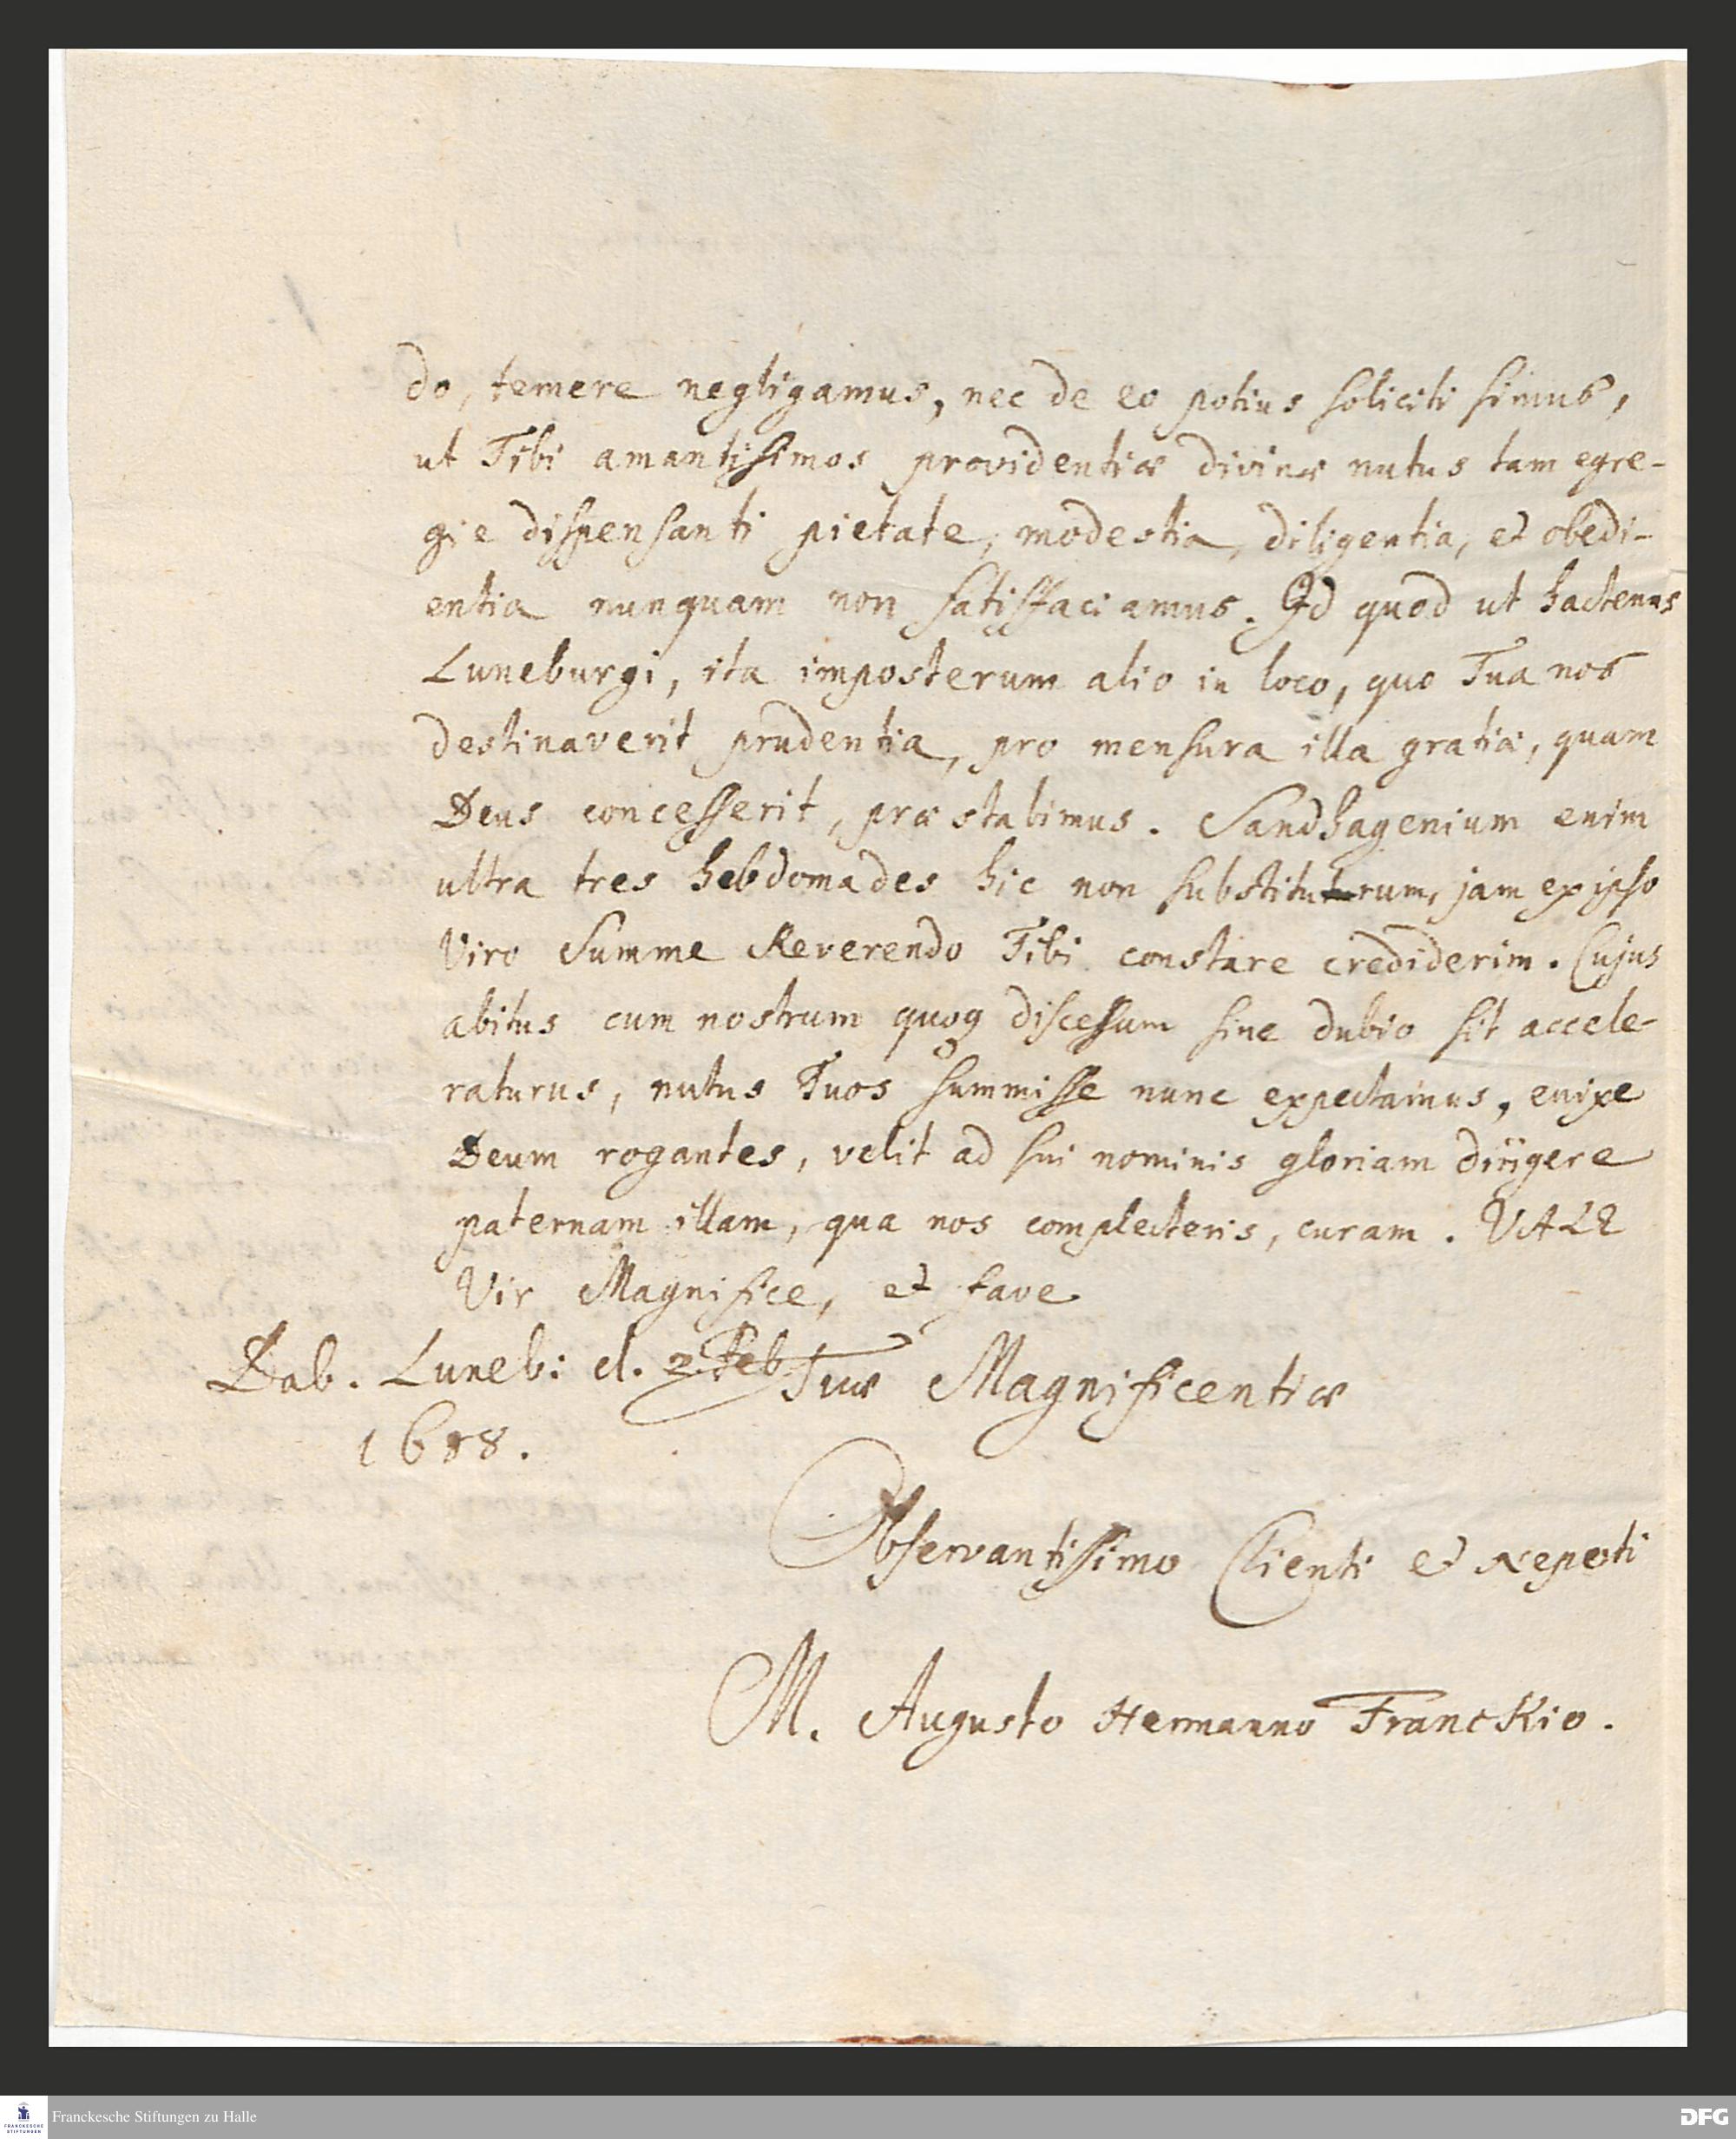 do, temere negligamus, nec de eo potius soliciti simus,
ut Tibi amantissimos providentiæ divinæ nutus tam egre-
gie dispensanti pietate, modestia, diligentia, et obedi-
entia nunquam non satisfaciamus. Id quod ut hactenus
Luneburgi, ita imposterum alio in loco, quo Tua nos
destinaverit prudentia, pro mensura illa gratiæ, quam
Deus concesserit, præstabimus. Sandhagenium enim
ultra tres hebdomades hic non substiturum, jam ex ipso
Viro Summe Reverendo Tibi constare crediderim. Cujus
abitus cum nostrum quoq discessum sine dubio sit accele-
raturus, nutus Tuos summisse nunc expectamus, enixe
Deum rogantes, velit ad sui nominis gloriam dirigere
paternam illam, qua nos complecteris, curam. VALE
Vir Magnifice, et fave
Dab. Luneb: d. 2. Feb. Tuæ Magnificentiæ
1688.
Observantissimo Clienti et Nepoti
M. Augusto Hermanno Franckio.
Franckesche Stiftungen zu Halle
FRANCKESCHE
STIFTUNGEN
DFG